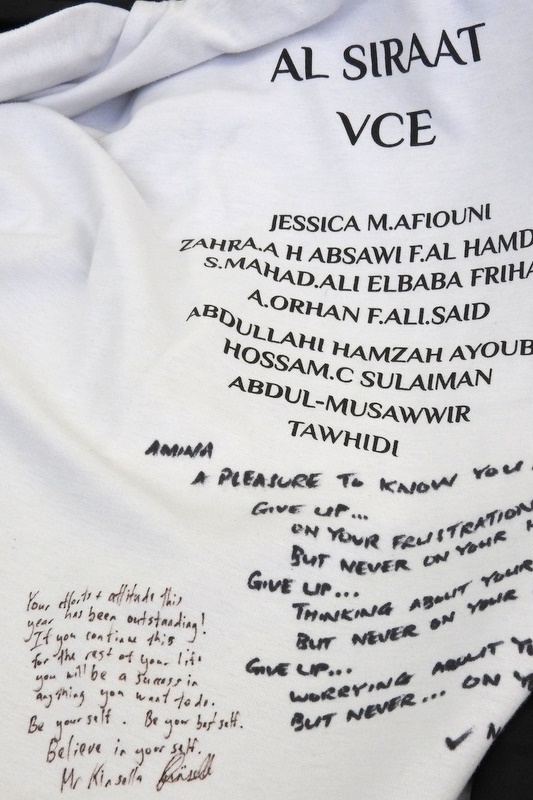 AL SIRAAT
VCE
JESSICA M.AFIOUNI
ZAHRA.A H ABSAWI F.AL HAMD
S.MAHAD.ALI ELBABA FRIHA
A.ORHAN F.ALI.SAID
ABDULLAHI HAMZAH AYOUB
HOSSAM.C SULAIMAN
ABDUL-MUSAWWIR
TAWHIDI
AMINA
A PLEASURE TO KNOW YOU
GIVE UP...
ON YOUR FRUSTRATION
BUT NEVER ON YOUR
GIVE UP...
THINKING ABOUT YOUR
BUT NEVER ON YOUR
GIVE UP...
WORRYING ABOUT
BUT NEVER... ON
Your efforts + attitude this
year has been outstanding!
If you continue this
for the rest of your life
you will be a success in
anything you want to do.
Be yourself. Be your best self.
Believe in yourself.
Mr Kinsella